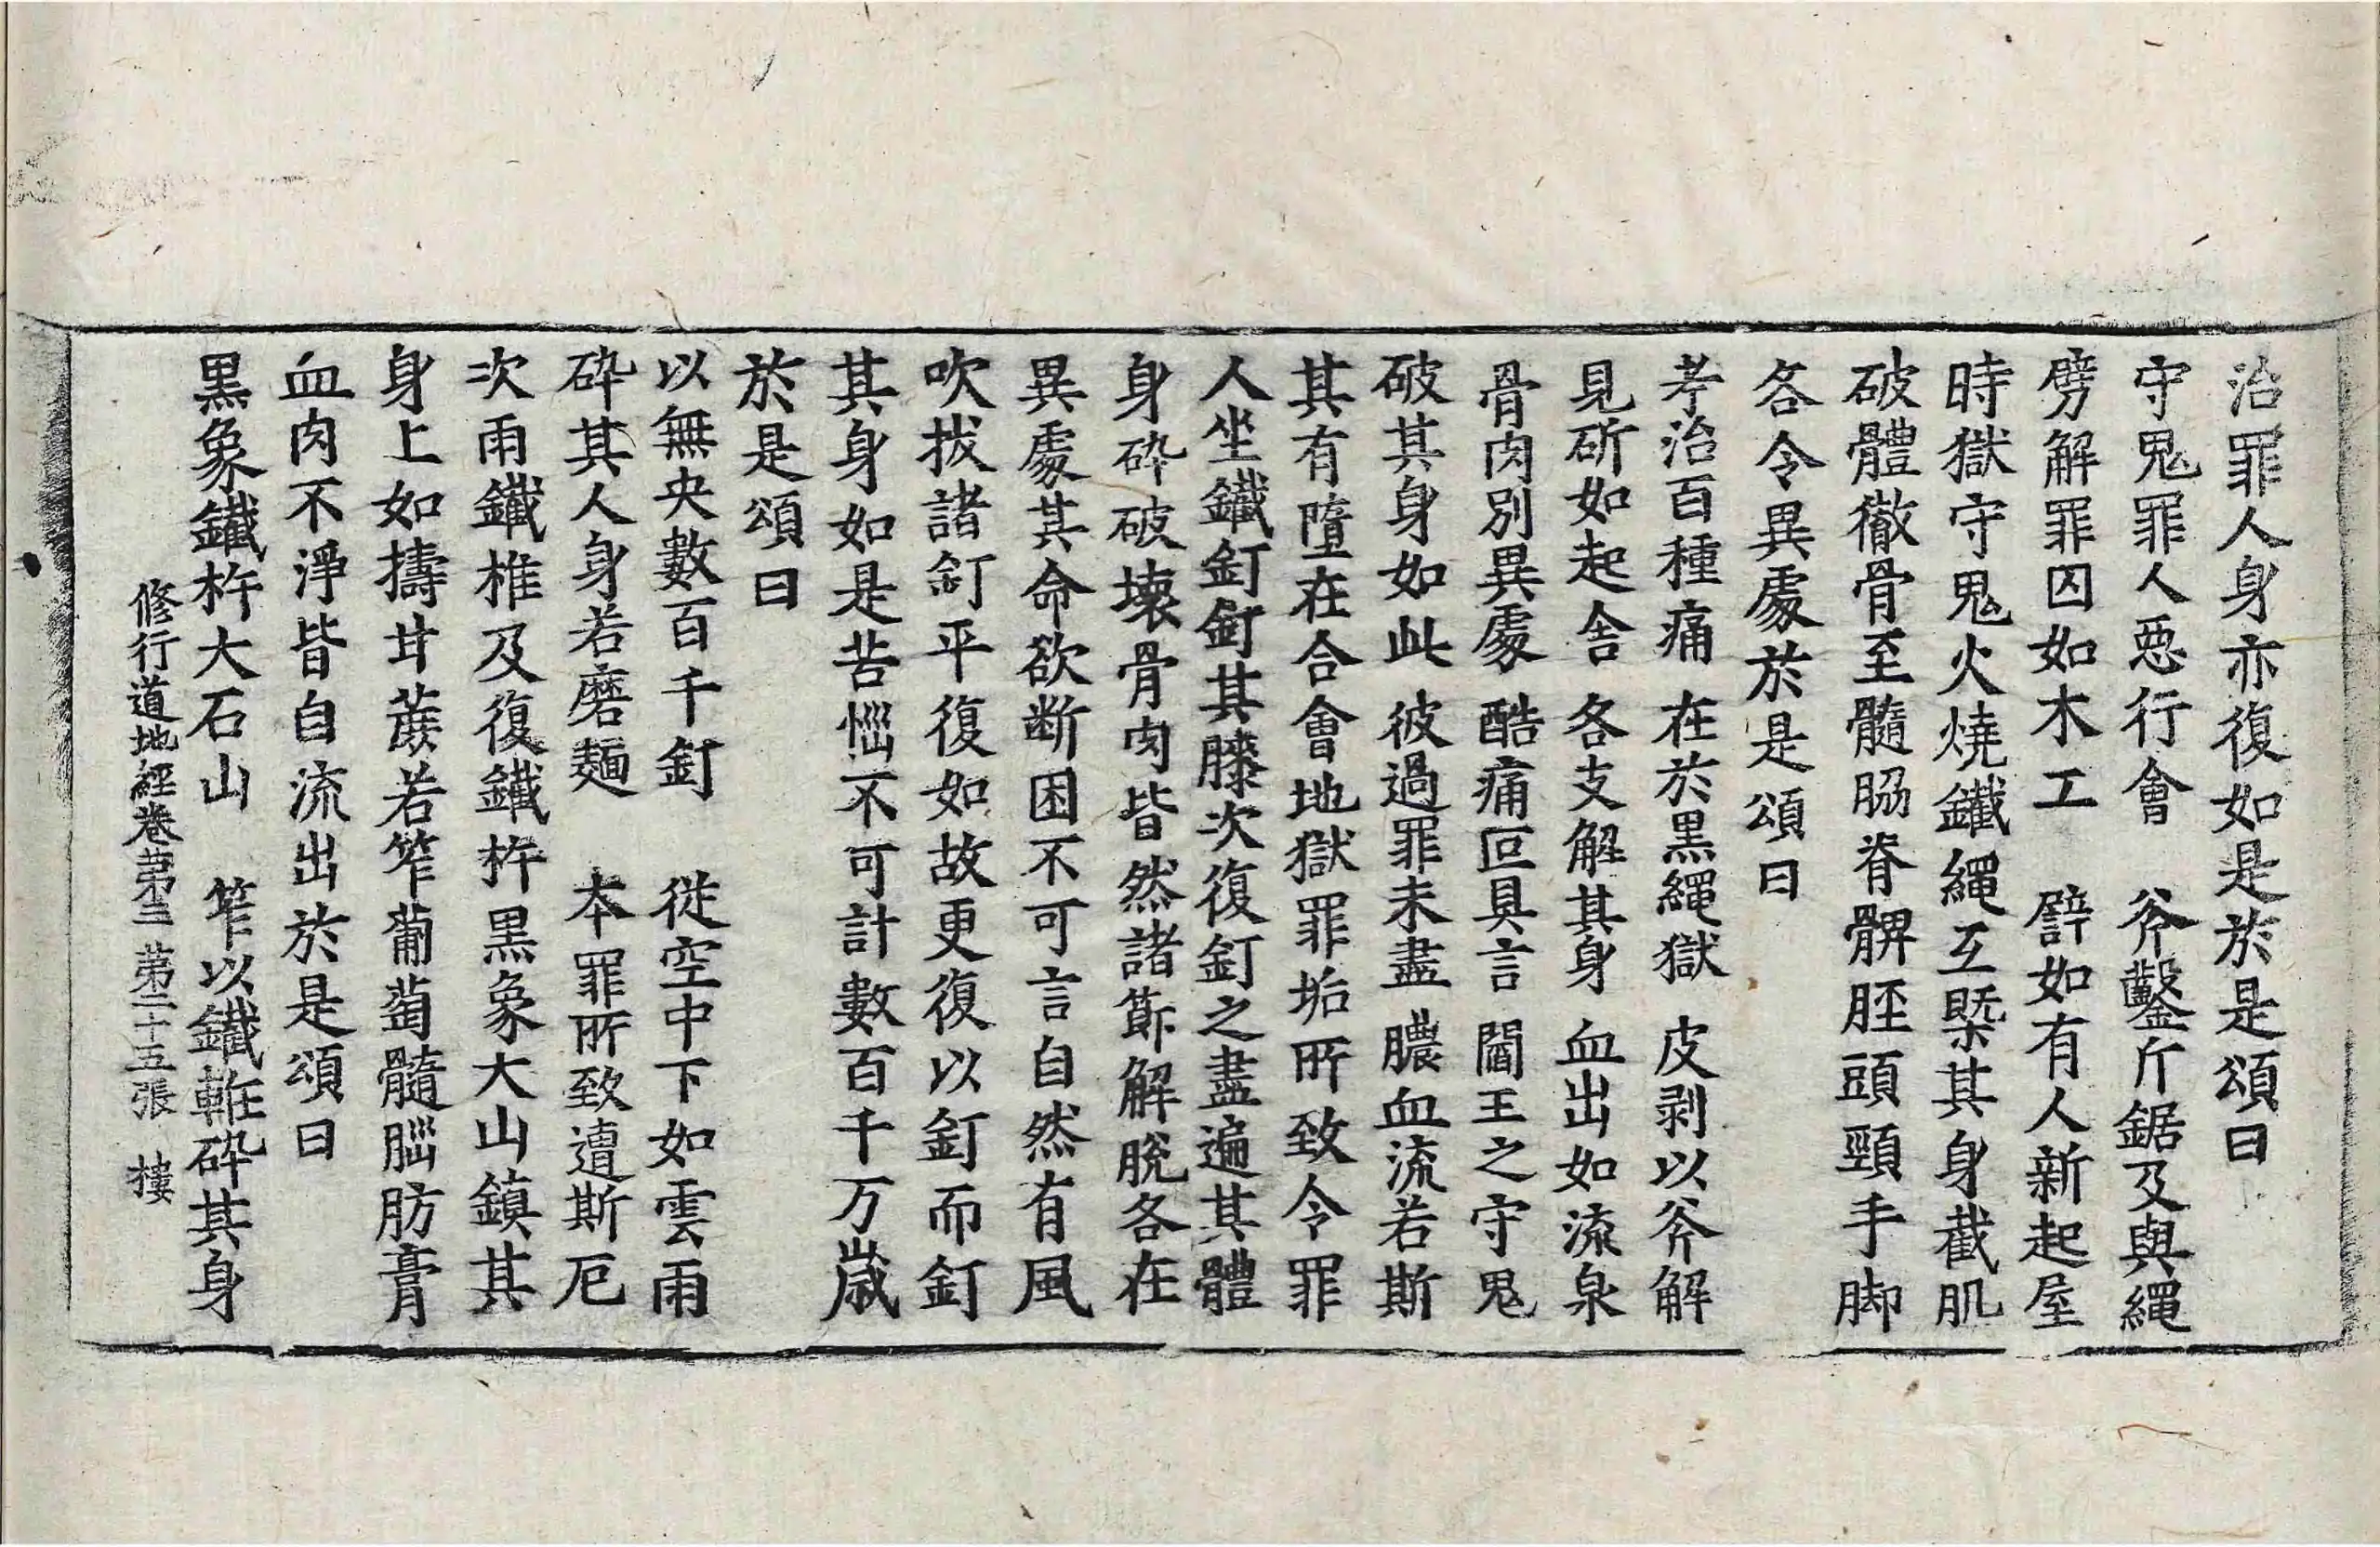 治罪人身亦復如是於是頌曰
守鬼罪人惡行會　斧鑿斤鋸及與繩
劈解罪囚如木工　譬如有人新起屋
時獄守鬼火燒鐵繩互槩其身截肌
破體徹骨至髓脇脊髀脛頭頸手脚
各令異處於是頌曰
考治百種痛　在於黑繩獄　皮剥以斧解
見斫如起舍　各支解其身　血出如流泉
骨肉別異處　酷痛叵具言　閻王之守鬼
破其身如此　彼過罪未盡　膿血流若斯
其有墮在合會地獄罪垢所致令罪
人坐鐵釘釘其膝次復釘之盡遍其體
身碎破壞骨肉皆然諸節解脫各在
異處其命欲斷困不可言自然有風
吹拔諸釘平復如故更復以釘而釘
其身如是苦惱不可計數百千万歲
於是頌曰
以無央數百千釘　從空中下如雲雨
碎其人身若磨麺　本罪所致遭斯厄
次雨鐵椎及復鐵杵黑象大山鎮其
身上如擣甘蔗若笮葡萄髓腦肪膏
血肉不淨皆自流出於是頌曰
黑象鐵杵大石山　笮以鐵𨋎碎其身
修行道地經卷第三　第二十五張　樓